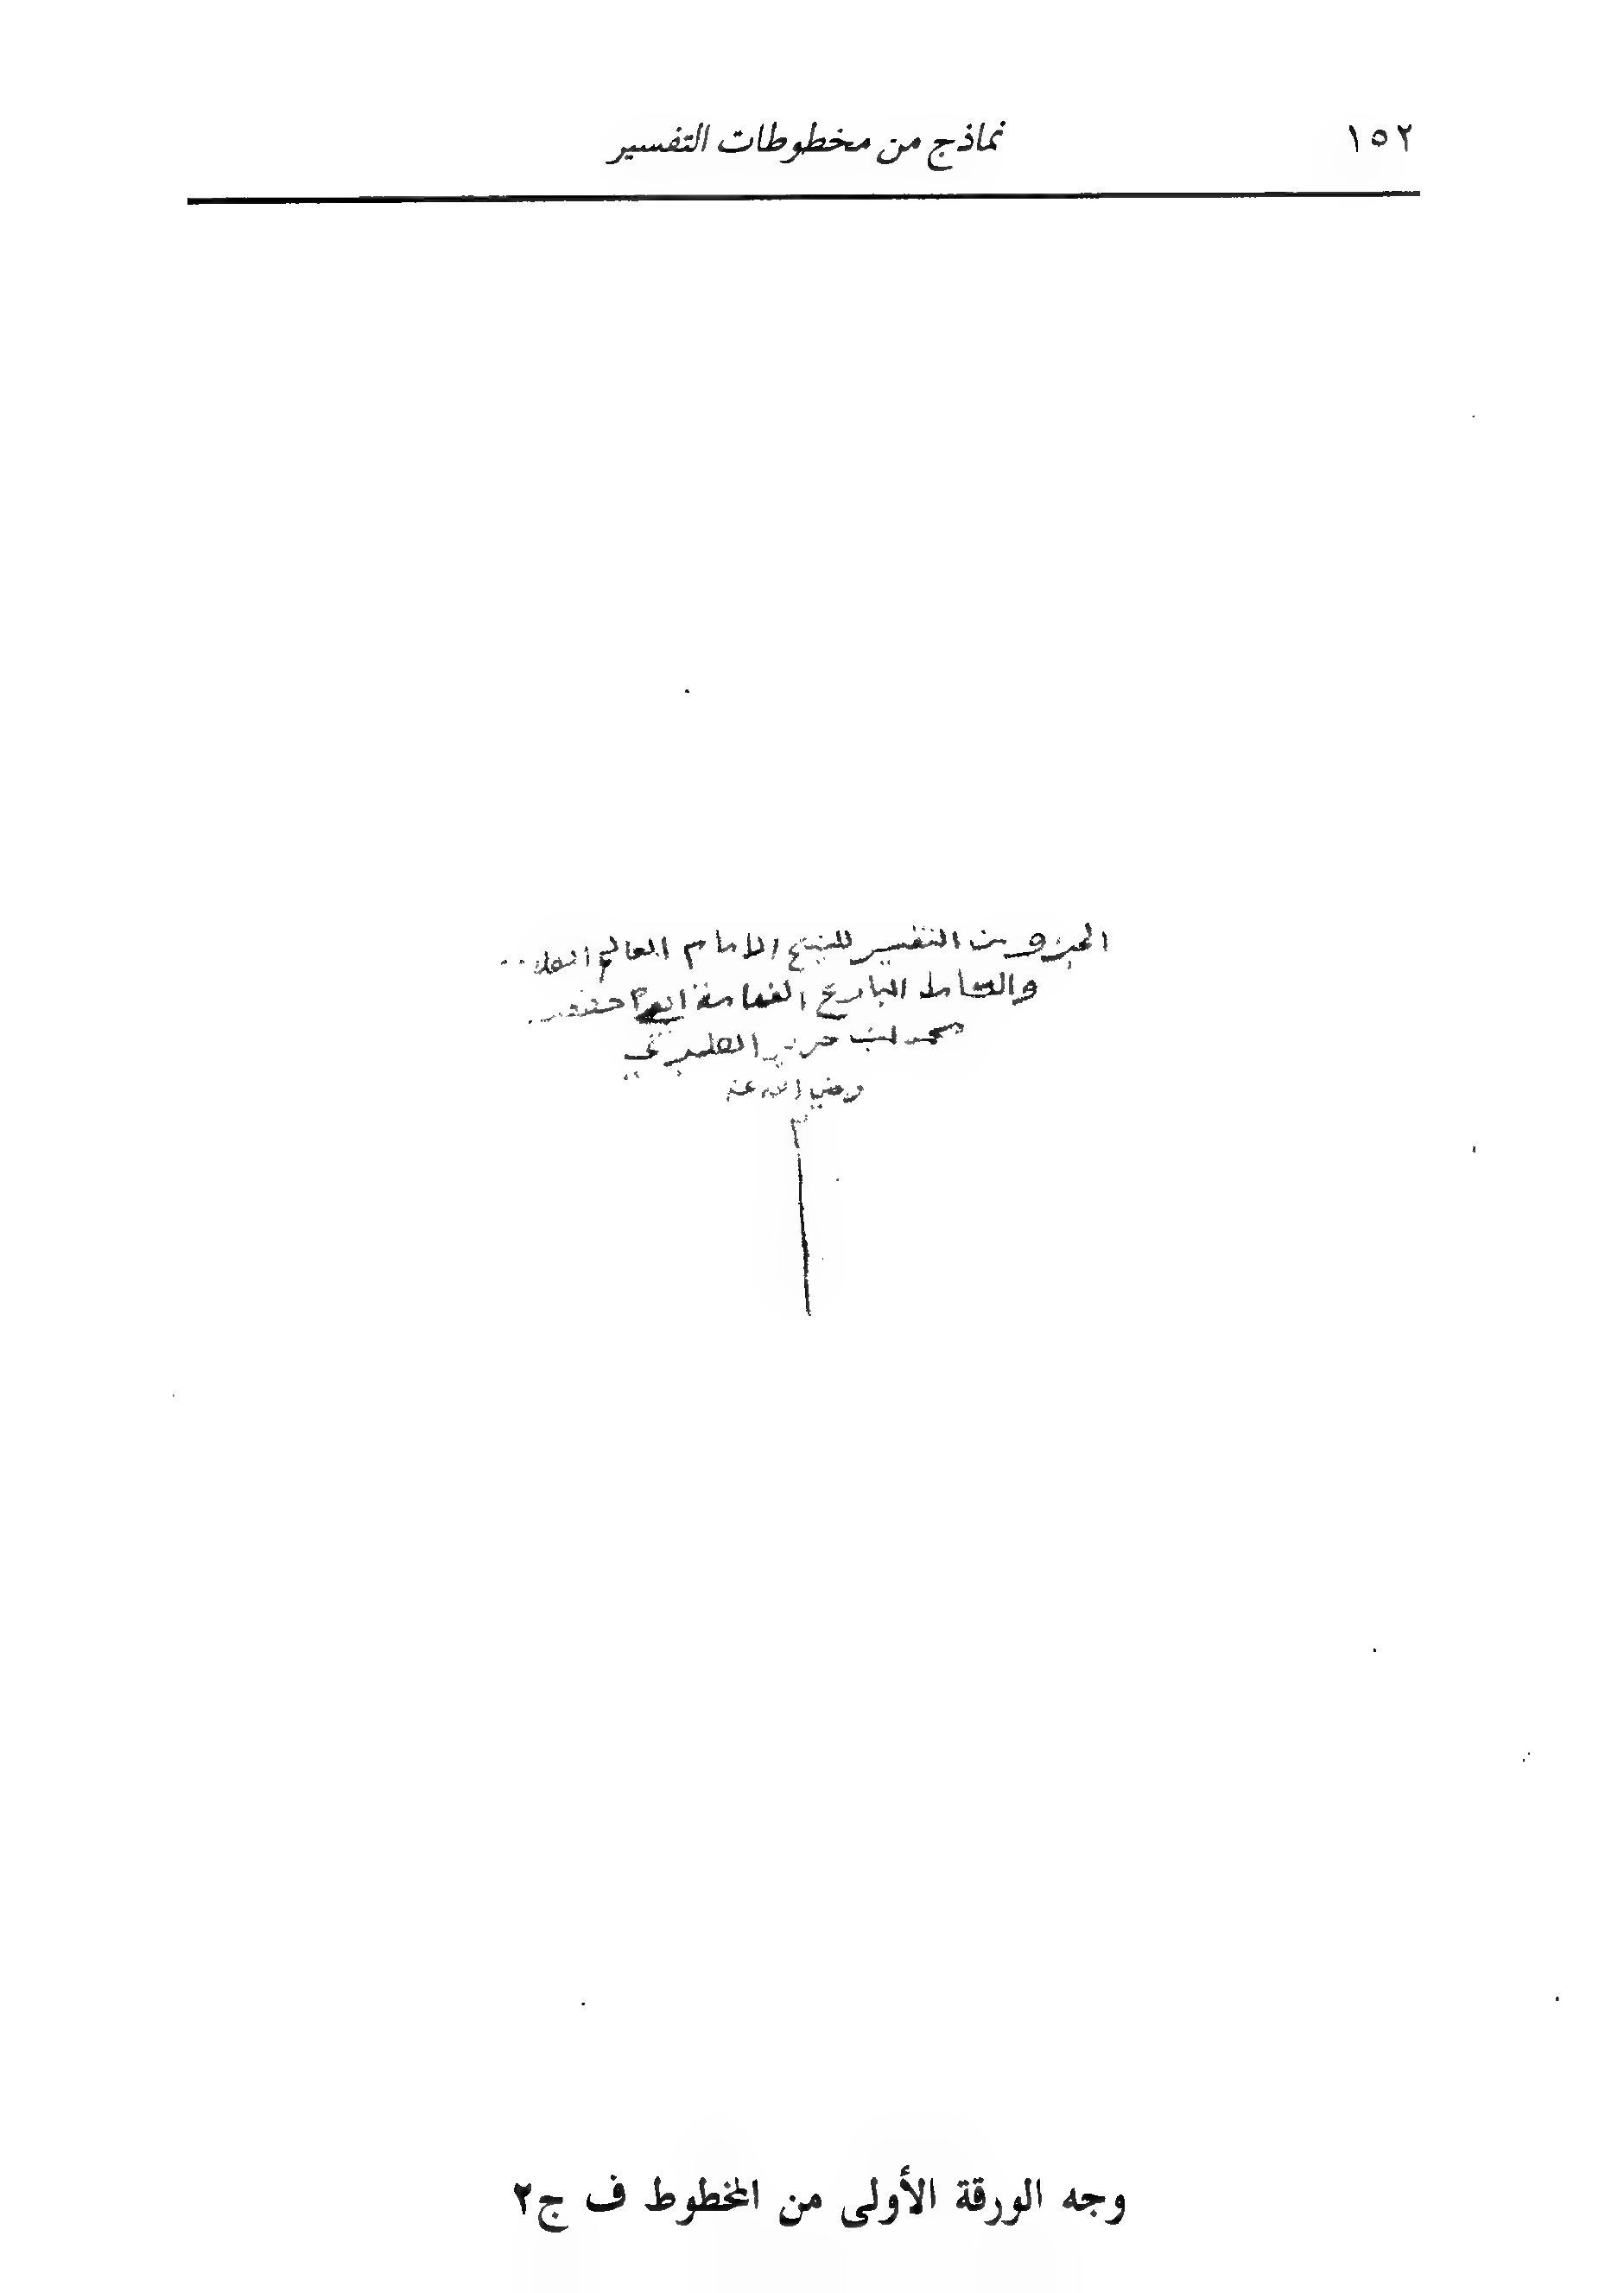 ١٥٢
نماذج من مخطوطات التفسير
الجزو من التفسير للشيخ الامام العالم العلامة
والكامل البارع الفهامة ابي جعفر
محمد بن جرير الطبري
رضي الله عنه
وجه الورقة الأولى من المخطوط ف ج٢